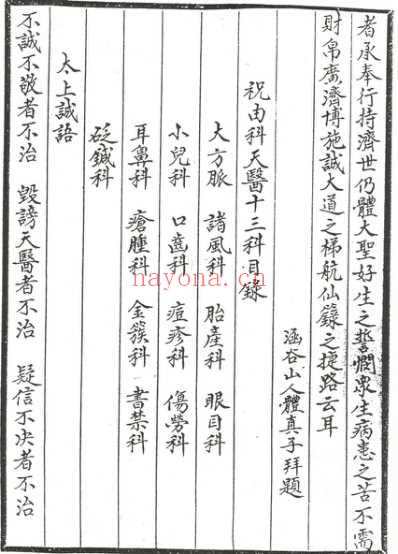 者承奉行持濟世仍體大聖好生之誓憫衆生病患之苦不需
財帛廣濟博施誠大道之梯航仙籙之捷路云耳
涵谷山人體真子拜題
祝由科天醫十三科目錄
大方脈 諸風科 胎產科 眼目科
小兒科 口齒科 痘疹科 傷勞科
耳鼻科 瘡腫科 金簇科 書禁科
砭鍼科
太上誠語
不誠不敬者不治 毀謗天醫者不治 疑信不決者不治
nayona.cn